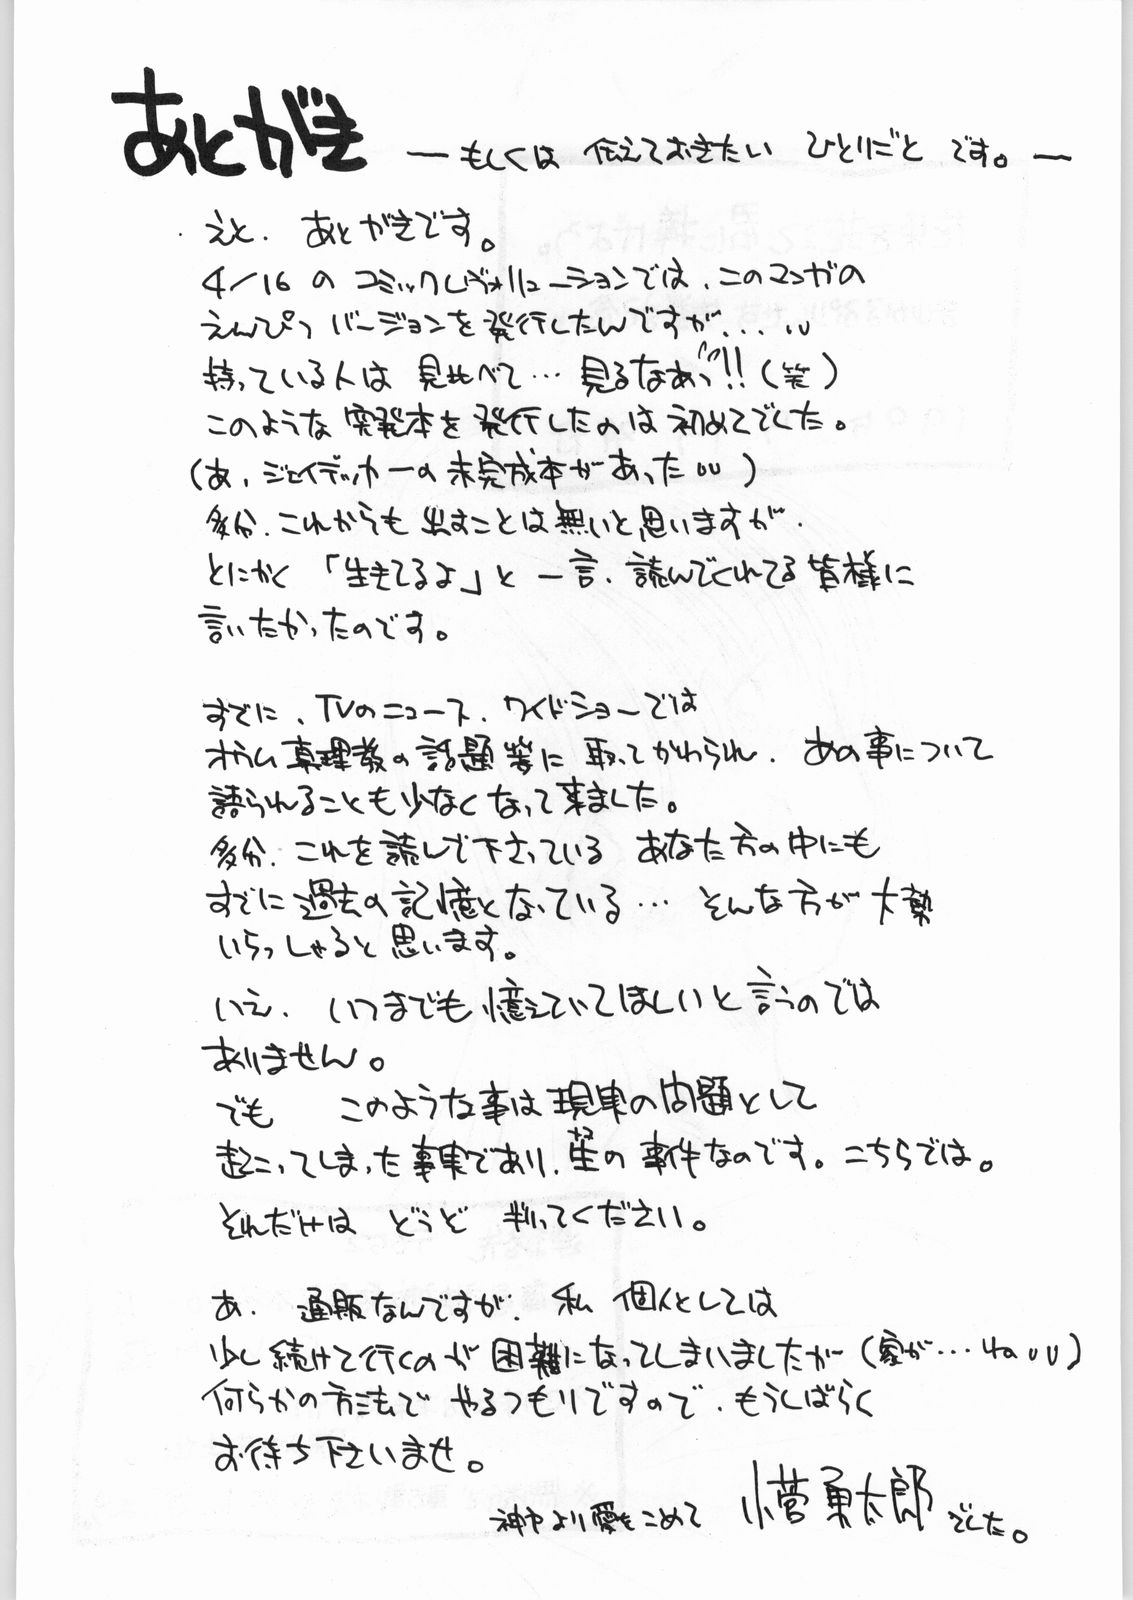 あとがき ―もしくは 伝えておきたい ひとりごと です。―
えと、あとがきです。
4/16 の コミックレヴォリューションでは、このマンガの
えんぴつ バージョンを 発行したんですが...
持っている人は 見比べて… 見るなあっ!!(笑)
このような 突発本を 発行したのは 初めてでした。
(あ、ジェイデッカーの 未完成本が あった)
多分、これからも 出すことは 無いと思いますが、
とにかく 「生きてるよ」と 一言、読んでくれてる 皆様に
言いたかったのです。
すでに、TVのニュース、ワイドショーでは
オウム真理教の話題等に 取ってかわられ、あの事について
語られることも少なくなって来ました。
多分、これを読んで下さっている あなた方の中にも
すでに過去の記憶となっている… そんな方が 大勢
いらっしゃると 思います。
いえ、いつまでも 憶えていてほしいと言うのでは
ありません。
でも このような事は現実の問題として
起こってしまった事実であり、生の 事件なのです。こちらでは。
それだけは どうぞ 判ってください。
あ、通販なんですが、私 個人としては
少し続けて行くのが 困難になってしまいましたが(家が…ね)
何らかの方法で やるつもりですので、もうしばらく
お待ち下さいませ。
神戸より愛をこめて 小菅勇太郎でした。